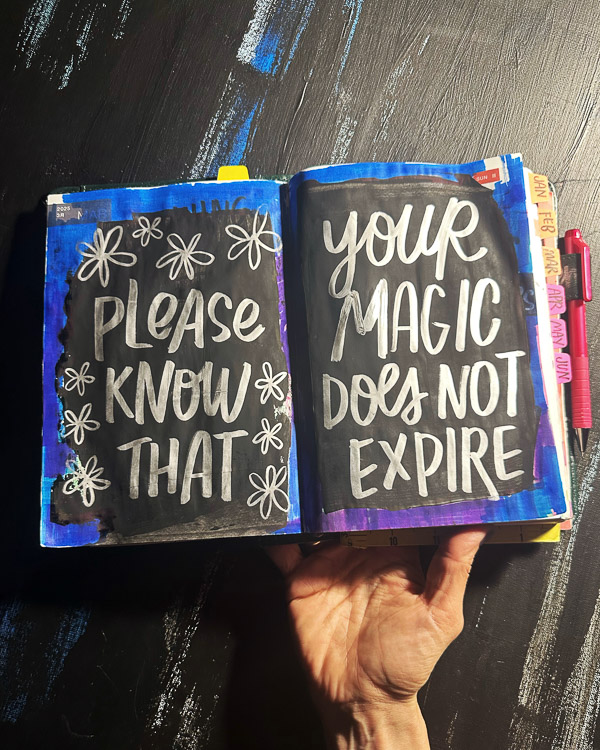 2025
PLEASE
KNOW
THAT
SUN 8
YOUR
MAGIC
DOES NOT
EXPIRE
JAN
FEB
MAR
APR
MAY
JUN
10